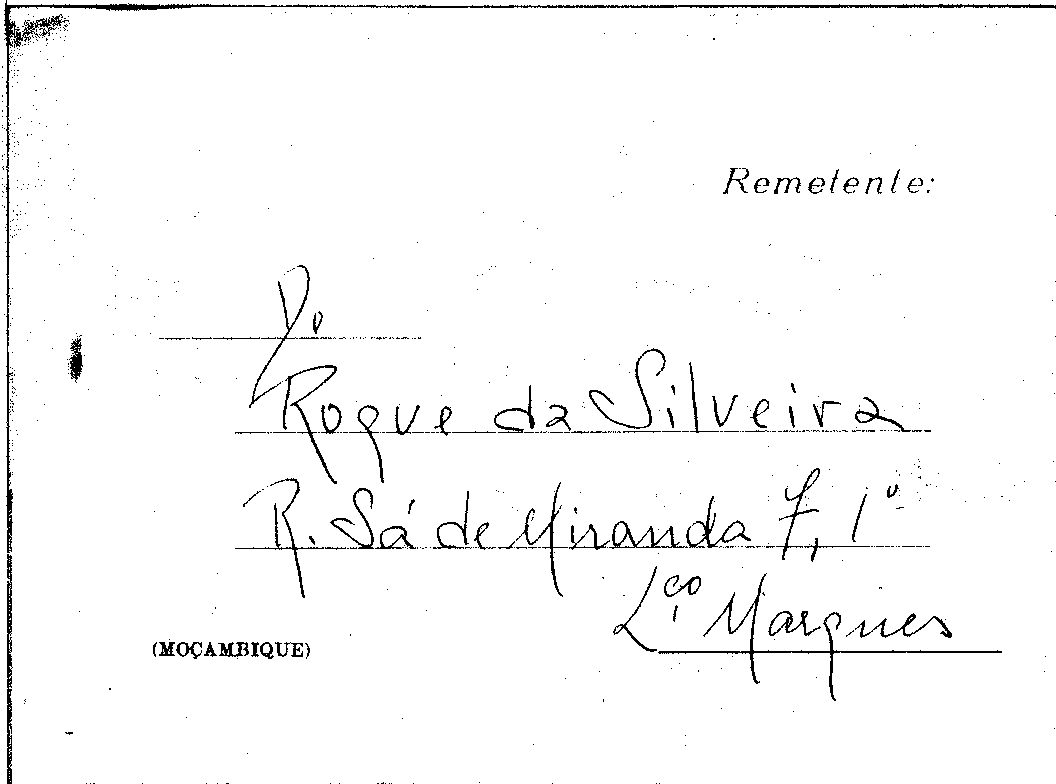 Remetente:
Do
Roque da Silveira
R. Sá de Miranda 7, 1º
Lço Marques
(MOÇAMBIQUE)